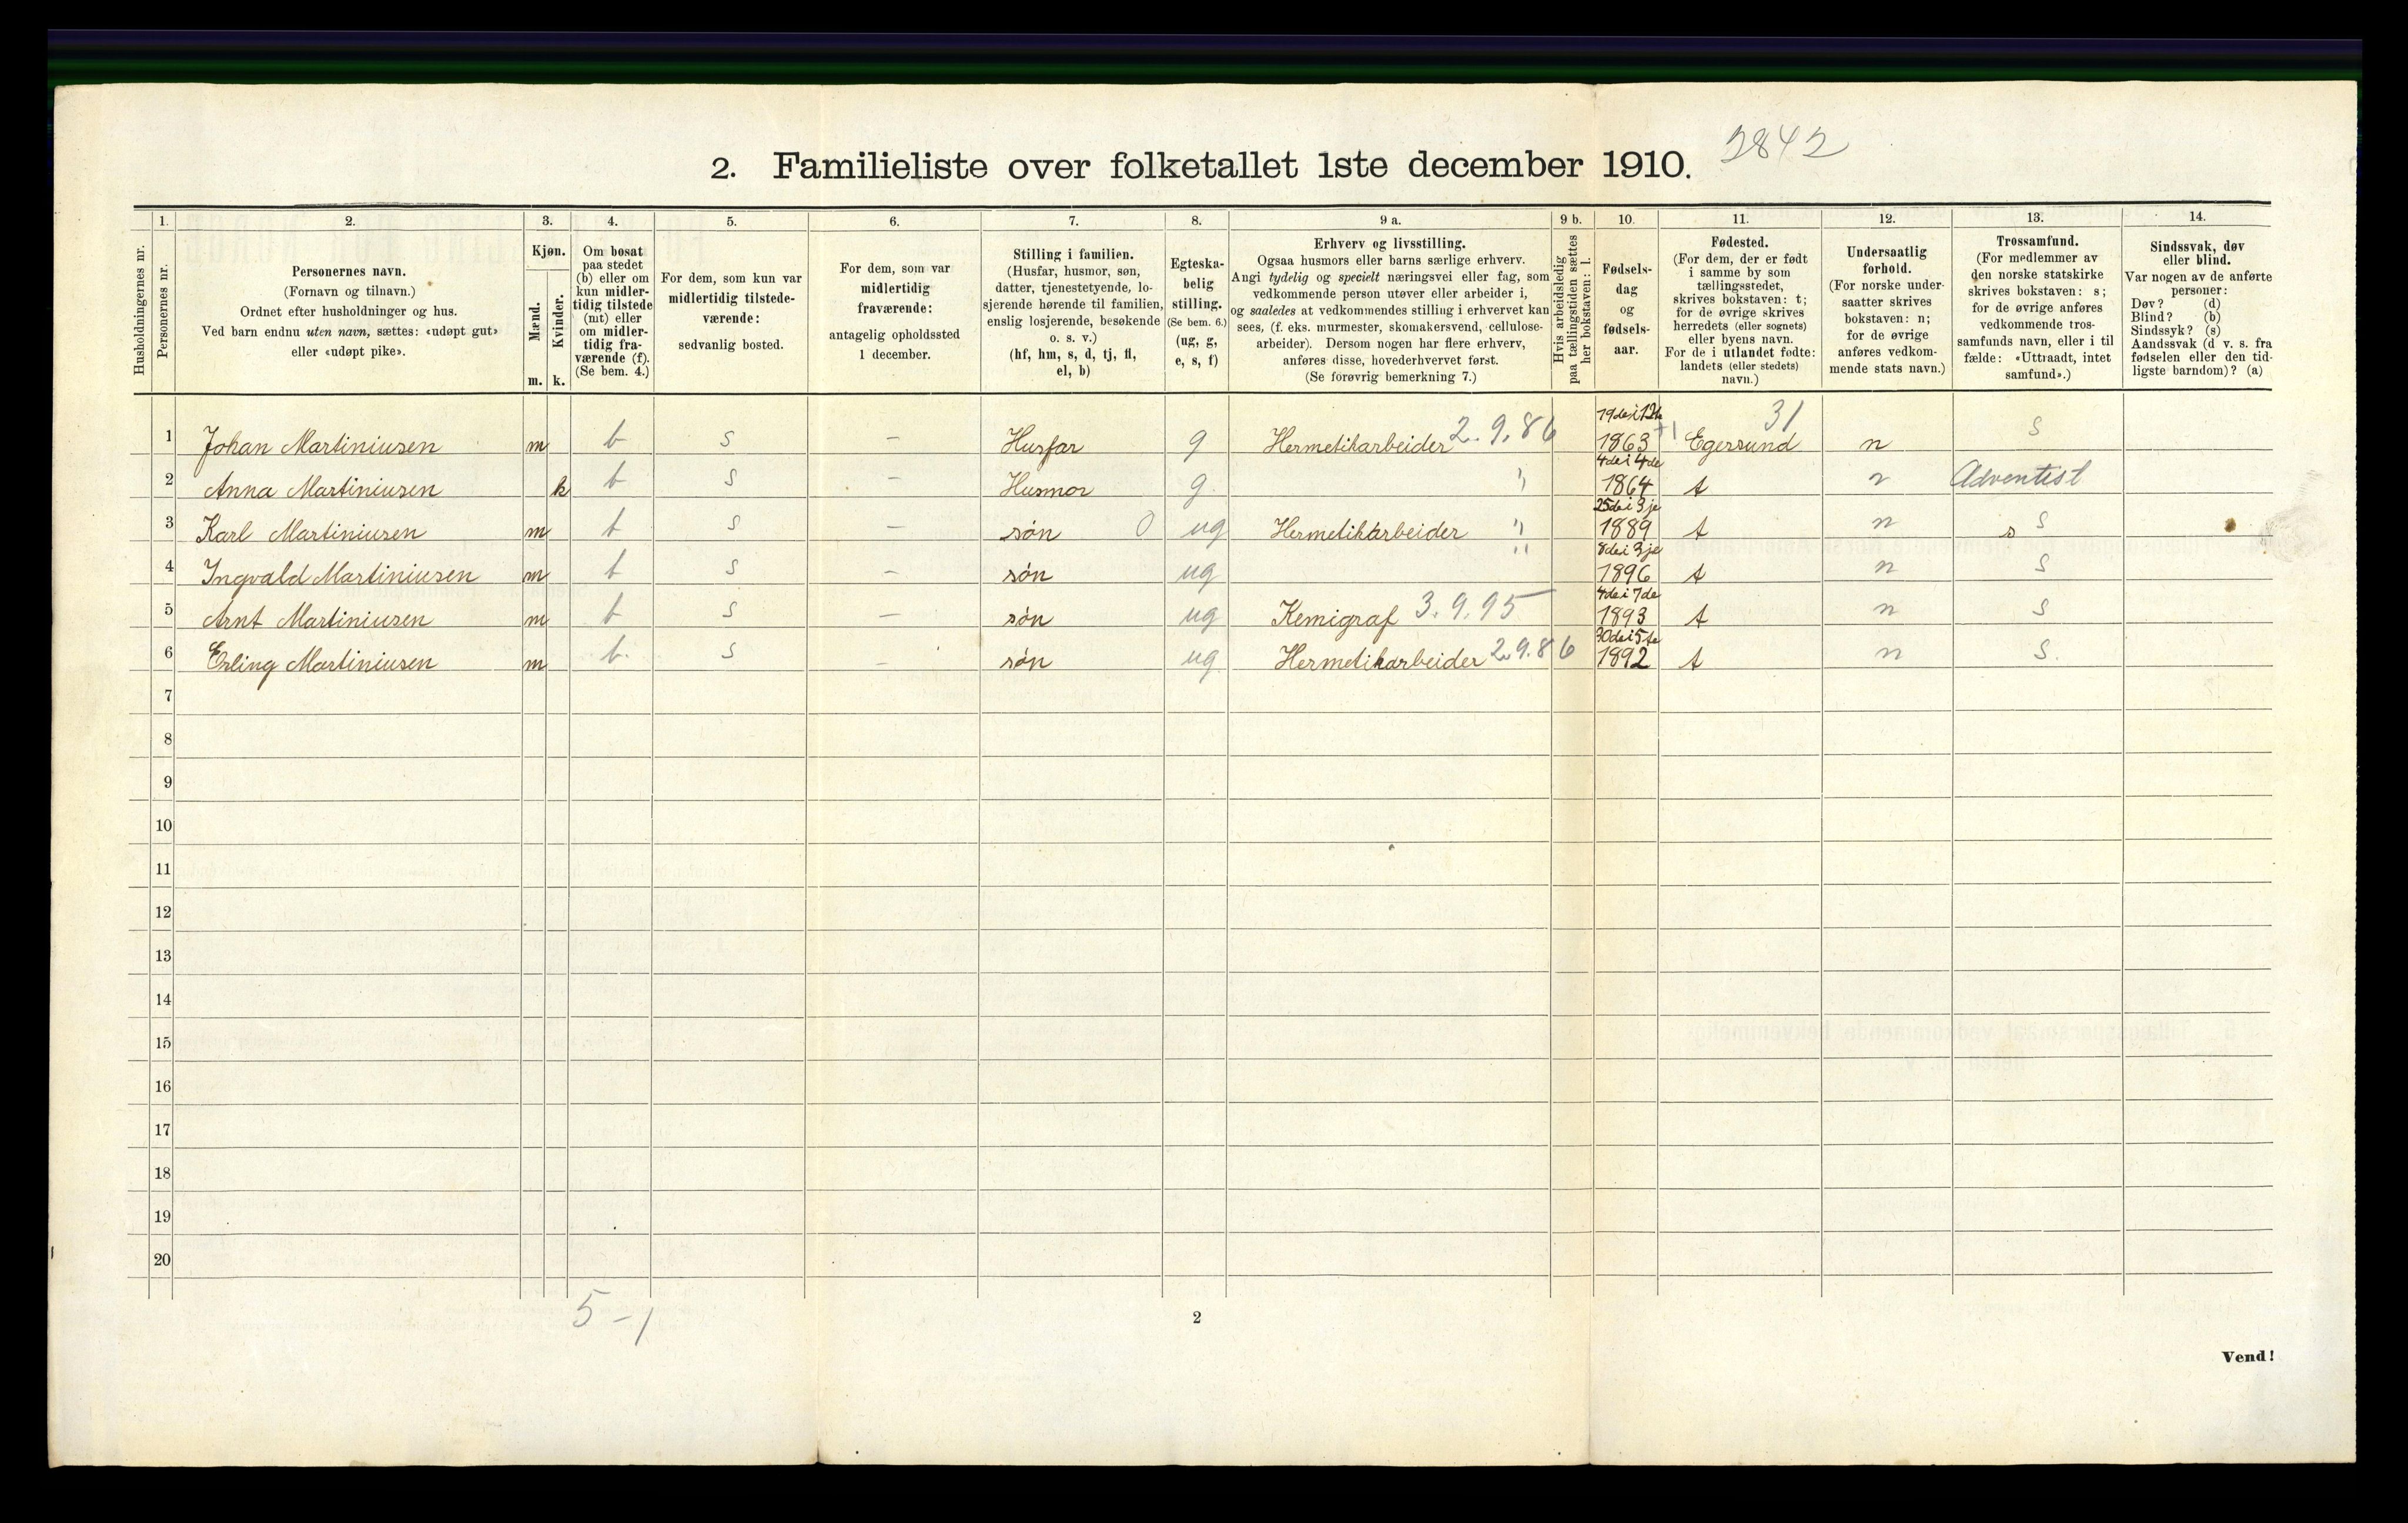 2842
2. Familieliste over folketallet 1ste december 1910.
1. 2. 3. 4. 5. 6. 7. 8. 9 a. 9 b. 10. 11. 12. 13. 14.
Husholdningernes nr.
Personernes nr.
Personernes navn.
(Fornavn og tilnavn.)
Ordnet efter husholdninger og hus.
Ved barn endnu uten navn, sættes: «udøpt gut»
eller «udøpt pike».
Kjøn.
Mænd.
Kvinder.
m. k.
Om bosat
paa stedet
(b) eller om
kun midler-
tidig tilstede
(mt) eller
om midler-
tidig fra-
værende (f).
(Se bem. 4.)
For dem, som kun var
midlertidig tilstede-
værende:
sedvanlig bosted.
For dem, som var
midlertidig
fraværende:
antagelig opholdssted
1 december.
Stilling i familien.
(Husfar, husmor, søn,
datter, tjenestetyende, lo-
sjerende hørende til familien,
enslig losjerende, besøkende
o. s. v.)
(hf, hm, s, d, tj, fl,
el, b)
Egteska-
belig
stilling.
(Se bem. 6.)
(ug, g,
e, s, f)
Erhverv og livsstilling.
Ogsaa husmors eller barns særlige erhverv.
Angi tydelig og specielt næringsvei eller fag, som
vedkommende person utøver eller arbeider i,
og saaledes at vedkommendes stilling i erhvervet kan
sees, (f. eks. murmester, skomakersvend, cellulose-
arbeider). Dersom nogen har flere erhverv,
anføres disse, hovederhvervet først.
(Se forøvrig bemerkning 7.)
Hvis arbeidsledig
paa tællingstiden sættes
her bokstaven: l.
Fødsels-
dag
og
fødsels-
aar.
Fødested.
(For dem, der er født
i samme by som
tællingsstedet,
skrives bokstaven: t;
for de øvrige skrives
herredets (eller sognets)
eller byens navn.
For de i utlandet fødte:
landets (eller stedets)
navn.)
Undersaatlig
forhold.
(For norske under-
saatter skrives
bokstaven: n;
for de øvrige
anføres vedkom-
mende stats navn.)
Trossamfund.
(For medlemmer av
den norske statskirke
skrives bokstaven: s;
for de øvrige anføres
vedkommende tros-
samfunds navn, eller i til-
fælde: «Uttraadt, intet
samfund».)
Sindssvak, døv
eller blind.
Var nogen av de anførte
personer:
Døv? (d)
Blind? (b)
Sindssyk? (s)
Aandssvak (d. v. s. fra
fødselen eller den tid-
ligste barndom)? (a)
19de i 12te 31
1 Johan Martiniusen m b s – Husfar g Hermetikarbeider 2.9.86 1863 +1 Egersund n s
4de i 4de
2 Anna Martiniusen k b s – Husmor g. " 1864 t n Adventist
25de i 3je
3 Karl Martiniusen m b s – søn 0 ug Hermetikarbeider " 1889 t n s s
8de i 3je
4 Ingvald Martiniusen m b s – søn ug " 1896 t n s
4de i 7de
5 Arnt Martiniusen m b s – søn ug Kemigraf 3.9.95 1893 t n s
30de i 5te
6 Erling Martiniusen m b. s – søn ug. Hermetikarbeider 2.9.86 1892 t n s.
7
8
9
10
11
12
13
14
15
16
17
18
19
20
5 – 1
2
Vend!